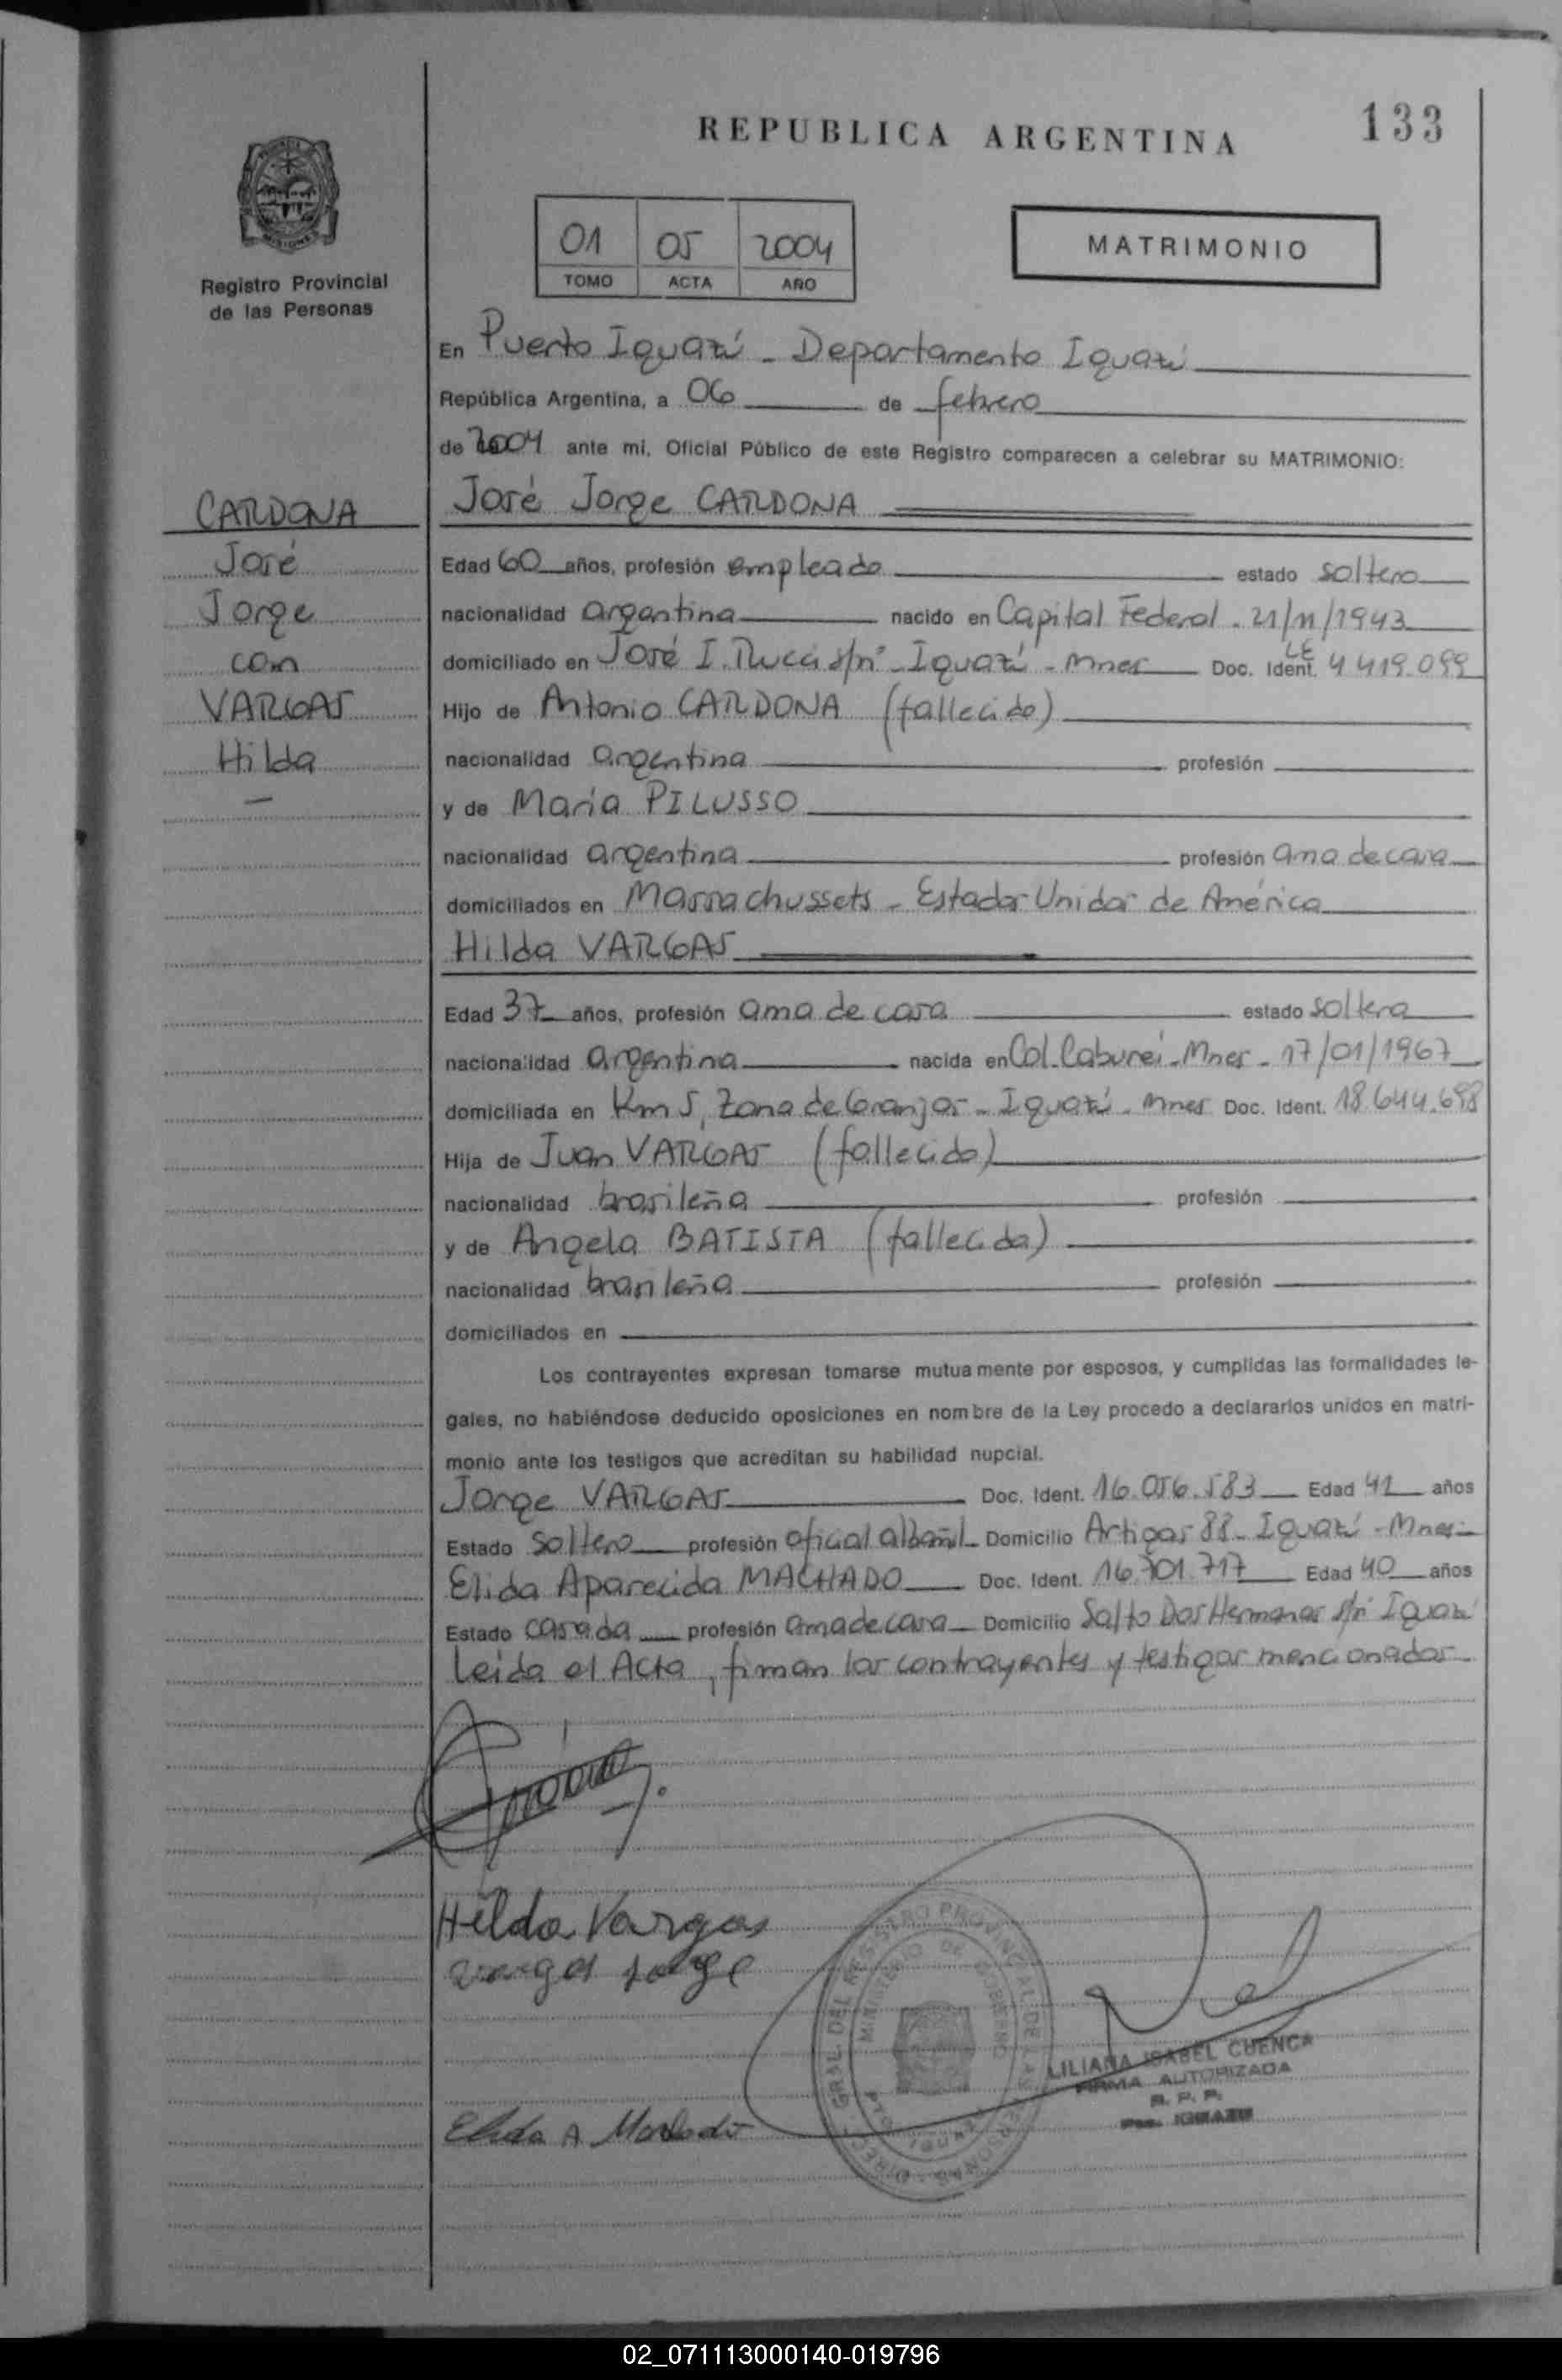 133
REPUBLICA ARGENTINA
MISIONES
Registro Provincial
de las Personas
01 05 2004
TOMO ACTA AÑO
MATRIMONIO
En Puerto Iguazú - Departamento Iguazú
República Argentina, a 06 de febrero
de 2004 ante mi, Oficial Público de este Registro comparecen a celebrar su MATRIMONIO:
CARDONA
José
Jorge
con
VARGAS
Hilda
José Jorge CARDONA
Edad 60 años, profesión empleado estado soltero
nacionalidad argentina nacido en Capital Federal - 21/11/1943
domiciliado en José I. Rucci s/nº - Iguazú - Mnes Doc. Ident. LE 4.419.099
Hijo de Antonio CARDONA (fallecido)
nacionalidad argentina profesión
y de María PILUSSO
nacionalidad argentina profesión ama de casa
domiciliados en Massachussets - Estados Unidos de América
Hilda VARGAS
Edad 37 años, profesión ama de casa estado soltera
nacionalidad argentina nacida en Col. Caburei - Mnes - 17/01/1967
domiciliada en Km 5, Zona de Granjas - Iguazú - Mnes Doc. Ident. 18.644.698
Hija de Juan VARGAS (fallecido)
nacionalidad brasileña profesión
y de Angela BATISTA (fallecida)
nacionalidad brasileña profesión
domiciliados en
Los contrayentes expresan tomarse mutuamente por esposos, y cumplidas las formalidades le-
gales, no habiéndose deducido oposiciones en nombre de la Ley procedo a declararlos unidos en matri-
monio ante los testigos que acreditan su habilidad nupcial.
Jorge VARGAS Doc. Ident. 16.056.583 Edad 41 años
Estado soltero profesión oficial albañil Domicilio Artigas 88 - Iguazú - Mnes
Elida Aparecida MACHADO Doc. Ident. 16.701.717 Edad 40 años
Estado casada profesión ama de casa Domicilio Salto Dos Hermanas s/nº Iguazú
Leída el Acta, firman los contrayentes y testigos mencionados
Hilda Vargas
Vargas Jorge
Elida A Machado
DIREC. GRAL. DEL REGISTRO PROVINCIAL DE LAS PERSONAS
MINISTERIO DE GOBIERNO
LILIANA ISABEL CUENCA
FIRMA AUTORIZADA
R. P. P.
Pto. IGUAZU
02_071113000140-019796